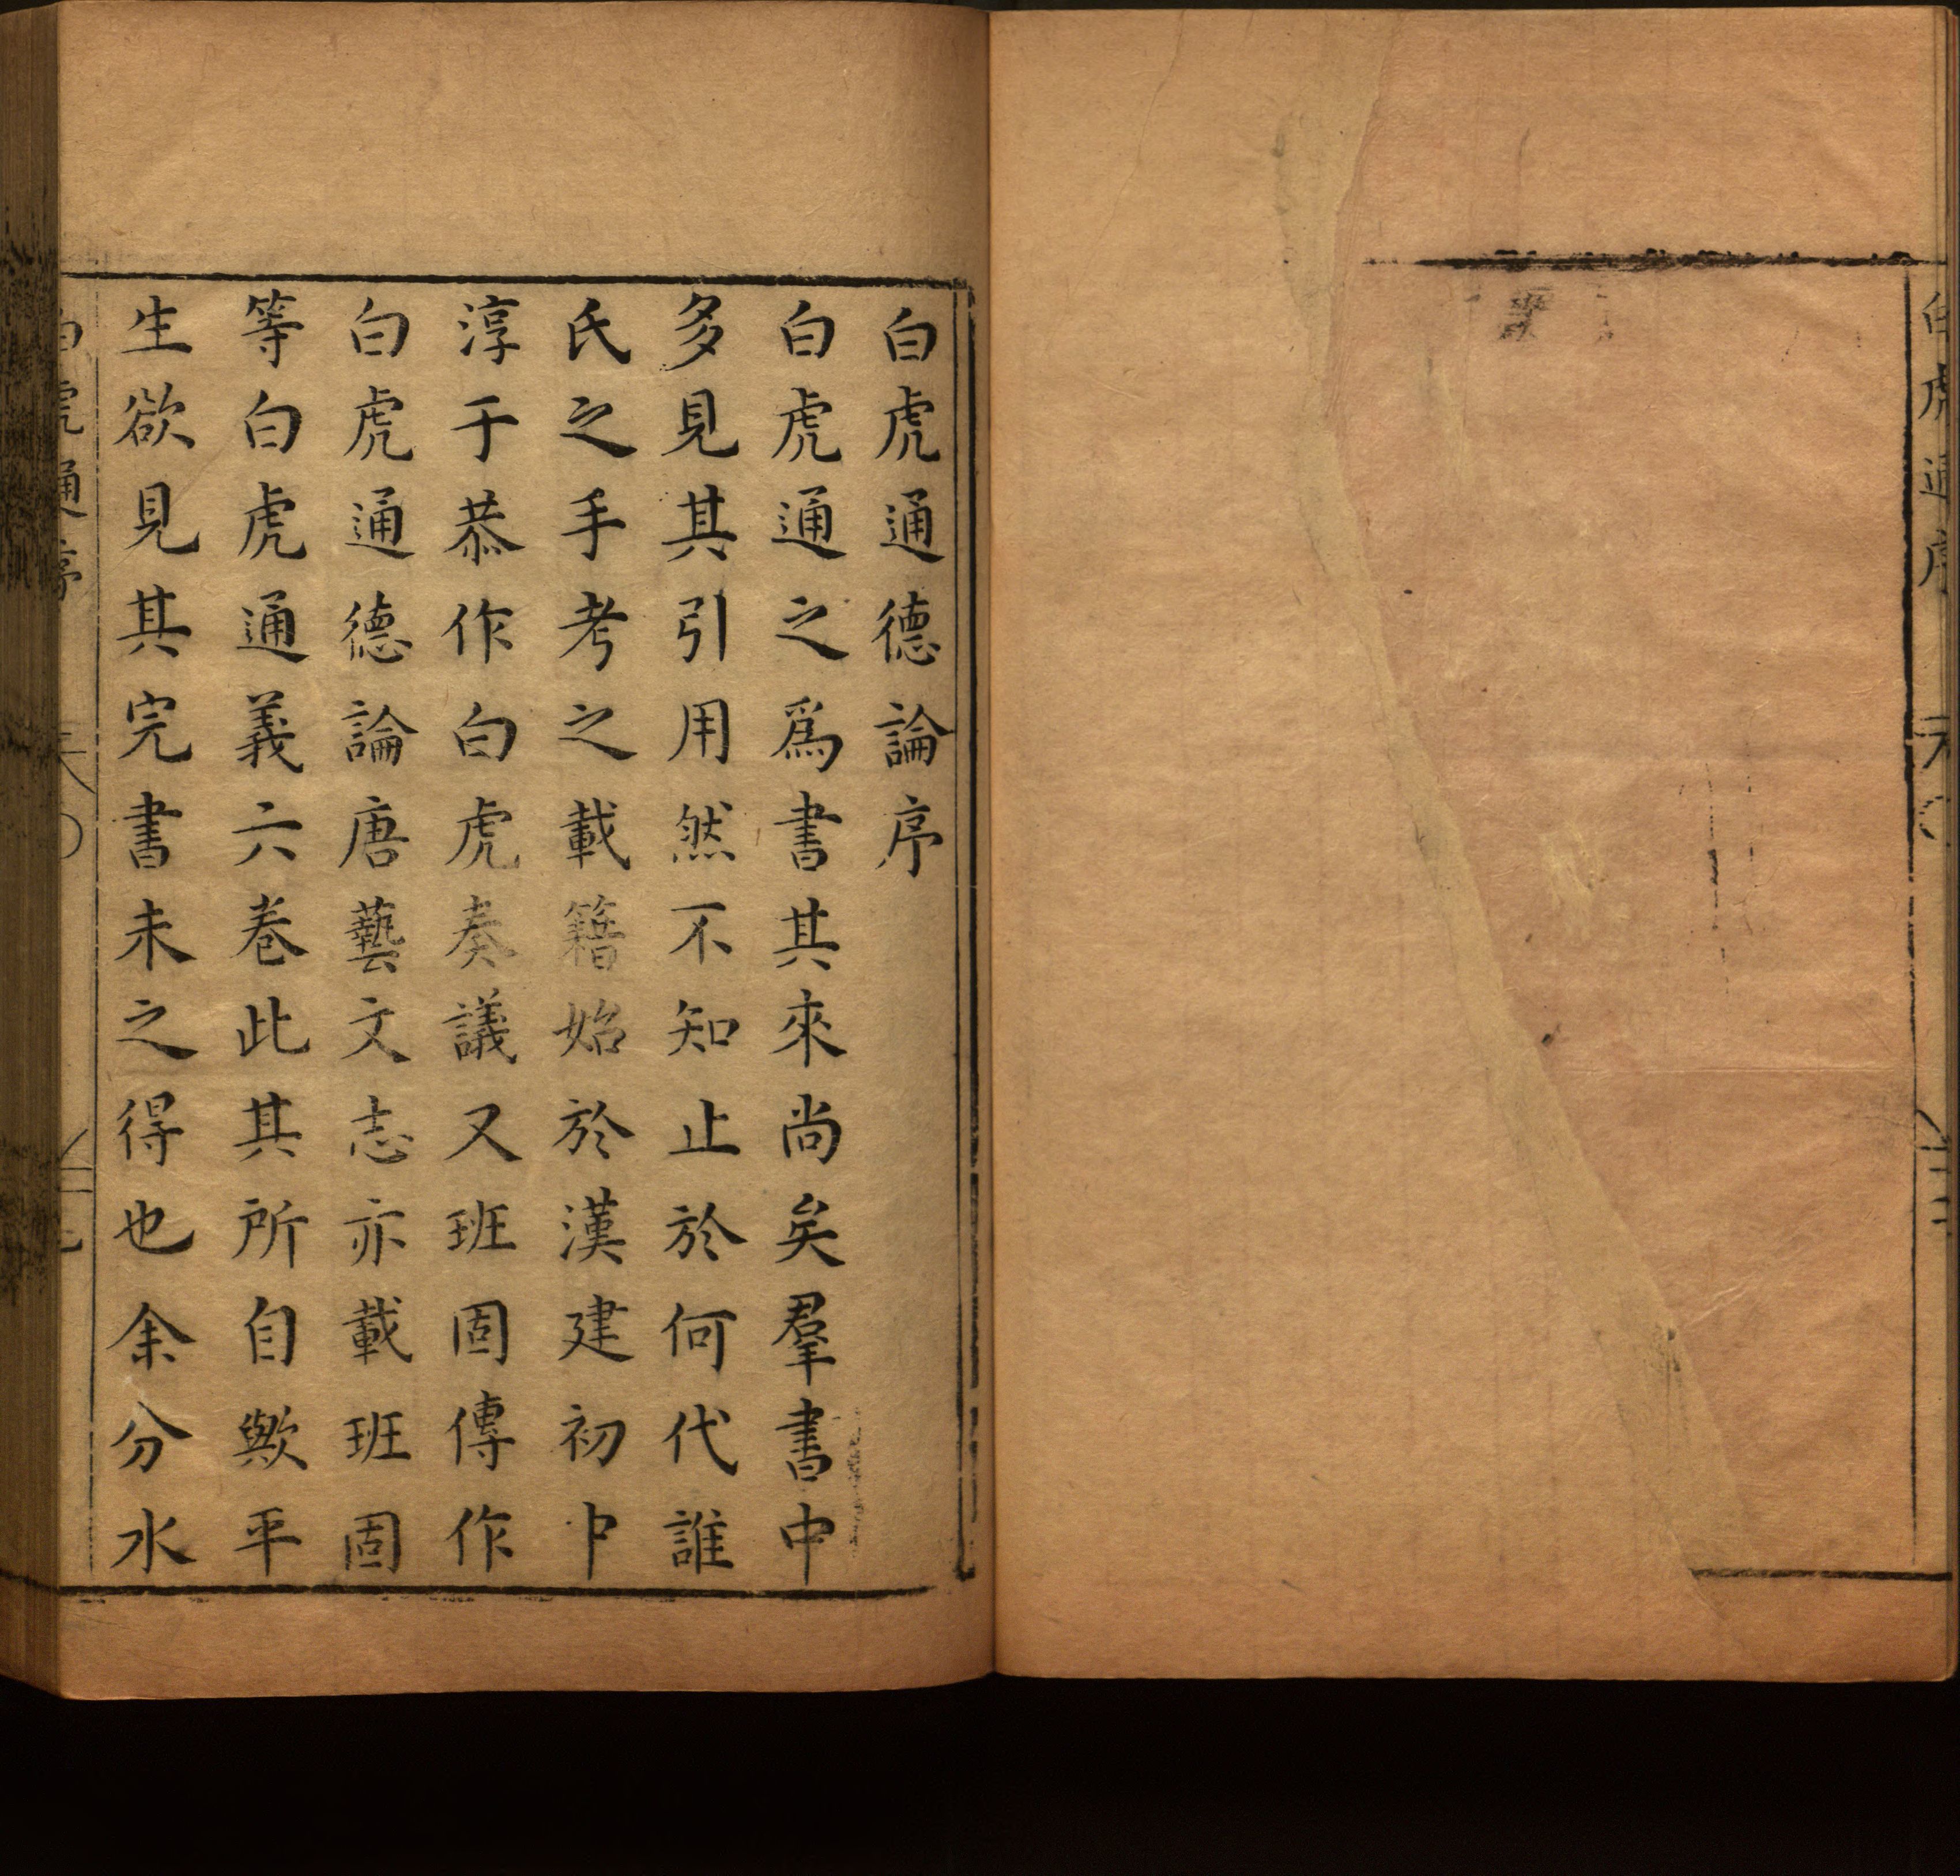 白虎通德論序
白虎通之爲書其來尚矣羣書中
多見其引用然不知止於何代誰
氏之手考之載籍始於漢建初中
淳于恭作白虎奏議又班固傳作
白虎通德論唐藝文志亦載班固
等白虎通義六卷此其所自歟平
生欲見其完書未之得也余分水
白虎通序